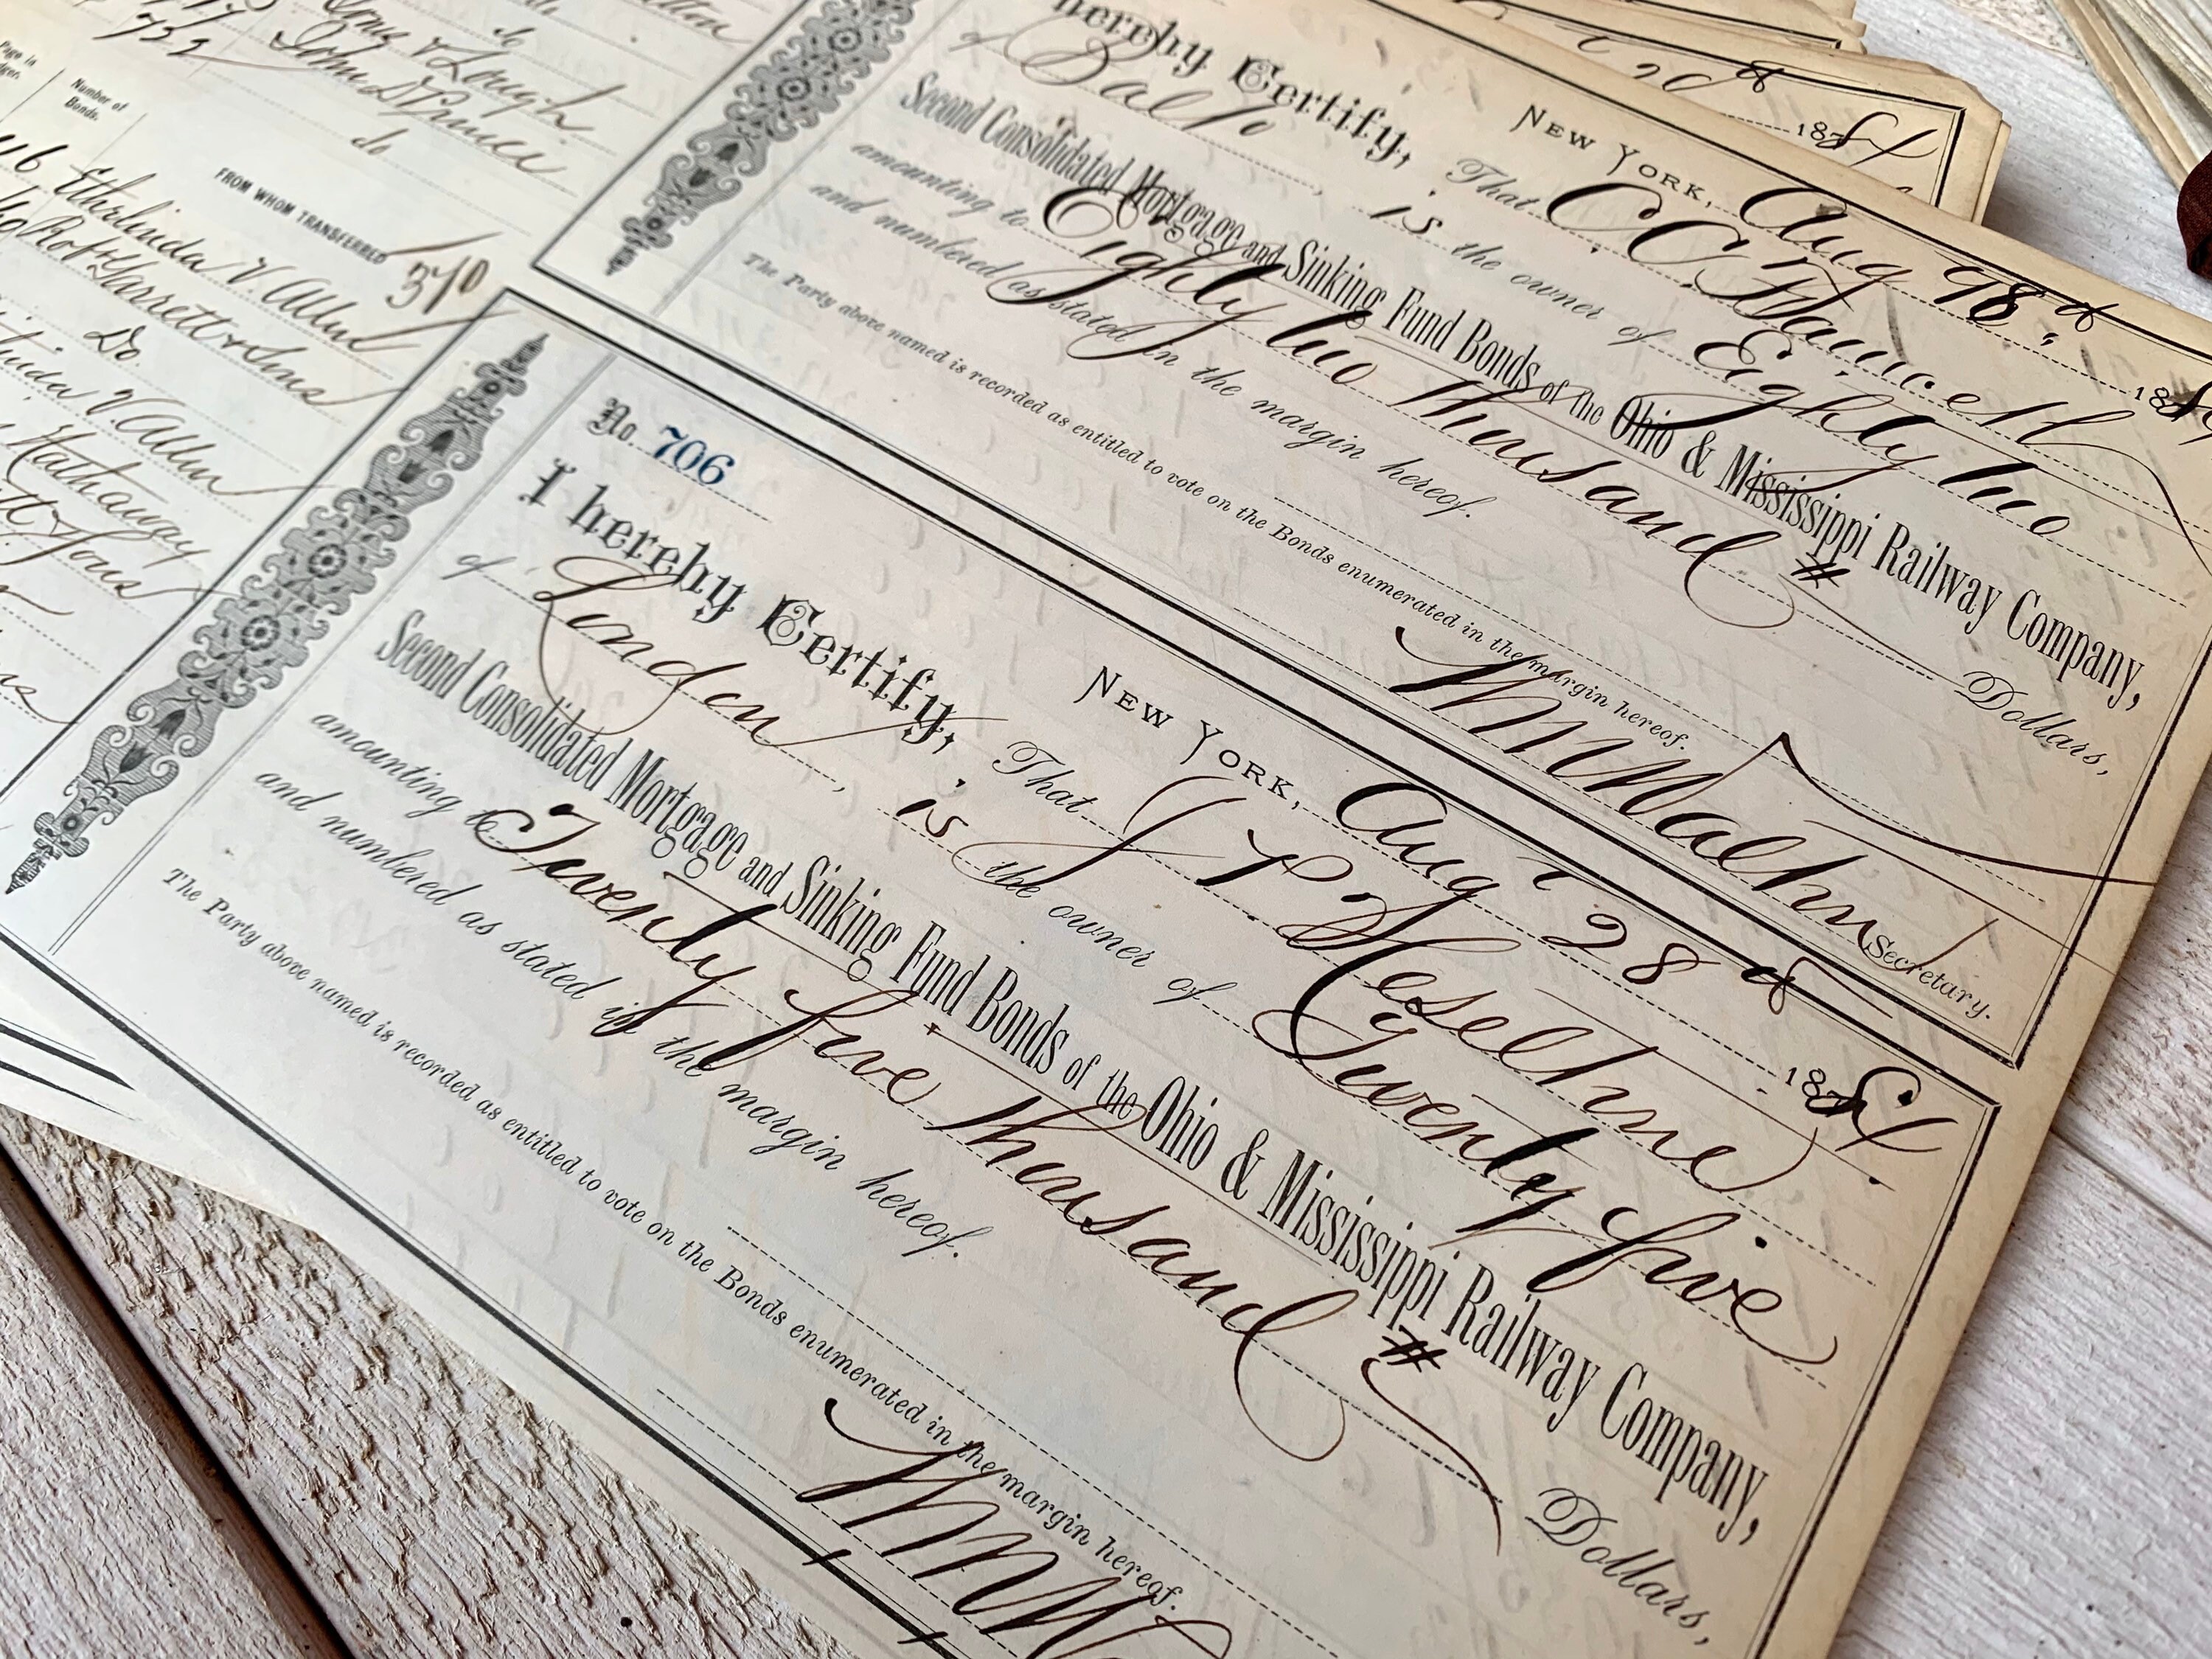 Page in
Number of
Bonds.
John D Prince
do
FROM WHOM TRANSFERRED
46 Ethelinda V. Allen
370
Robt Garrett & Sons
Do.
V Allen
Hathaway
hereby Certify,
of Balto
NEW YORK, Aug
That
is the owner of Eighty two
Second Consolidated Mortgage and Sinking Fund Bonds of the Ohio & Mississippi Railway Company,
amounting to Eighty two thousand Dollars,
and numbered as stated in the margin hereof.
The Party above named is recorded as entitled to vote on the Bonds enumerated in the margin hereof.
Secretary.
No. 706
NEW YORK, Aug 28 1884
I hereby Certify, That J P Heseltine
of London, is the owner of Twenty five
Second Consolidated Mortgage and Sinking Fund Bonds of the Ohio & Mississippi Railway Company,
amounting to Twenty five thousand Dollars,
and numbered as stated in the margin hereof.
The Party above named is recorded as entitled to vote on the Bonds enumerated in the margin hereof.